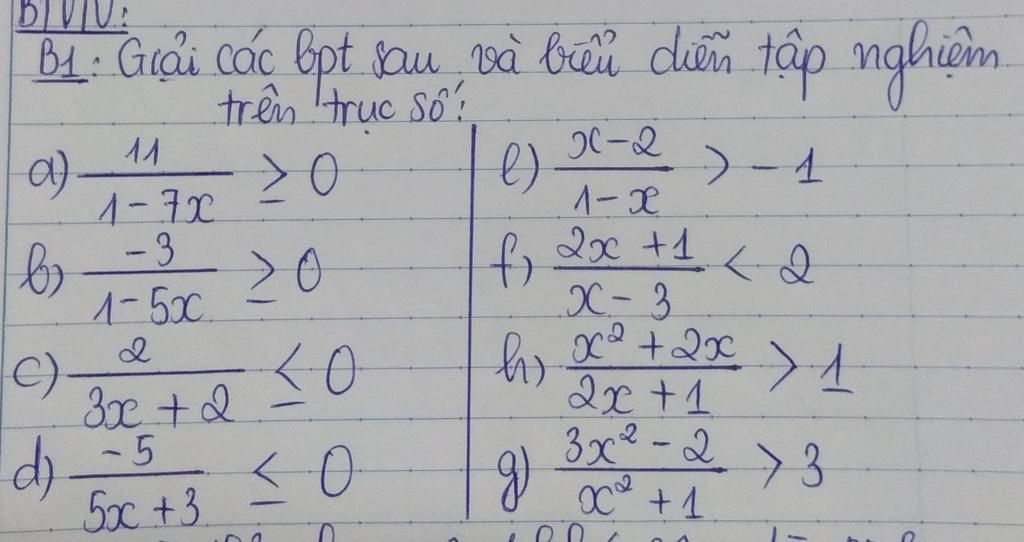 B1: Giải các bpt sau và biểu diễn tập nghiệm
trên trục số:
a) 11/(1-7x) ≥ 0
b) -3/(1-5x) ≥ 0
c) 2/(3x+2) ≤ 0
d) -5/(5x+3) ≤ 0
e) (x-2)/(1-x) > -1
f) (2x+1)/(x-3) < 2
h) (x²+2x)/(2x+1) > 1
g) (3x²-2)/(x²+1) > 3